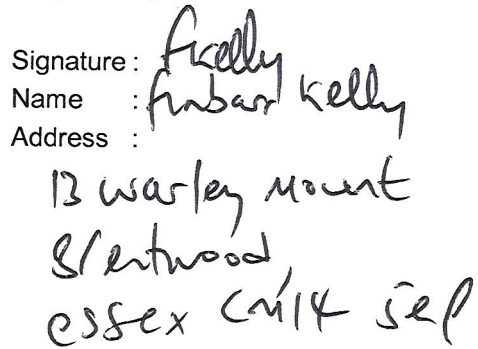 Signature : fkelly
Name : finbarr kelly
Address :
13 warley Mount
Brentwood,
essex CM14 5EP